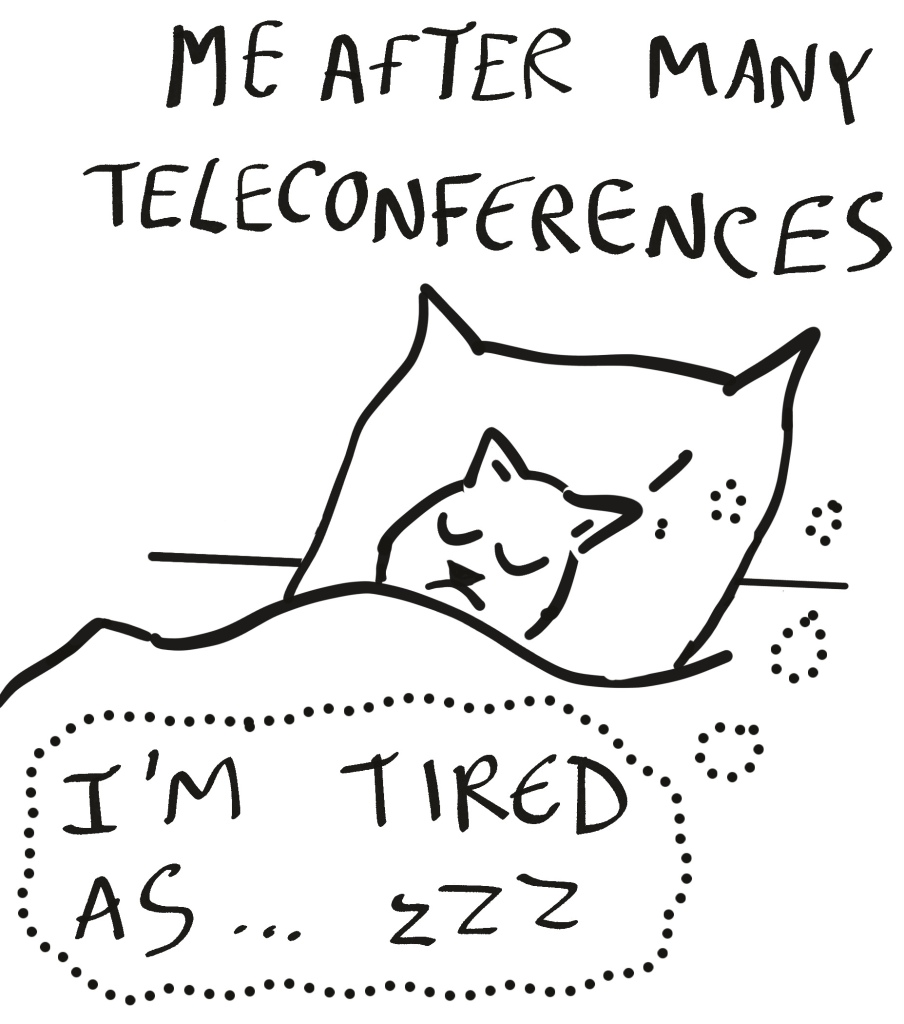 ME AFTER MANY
TELECONFERENCES
I'M TIRED
AS... zZZ